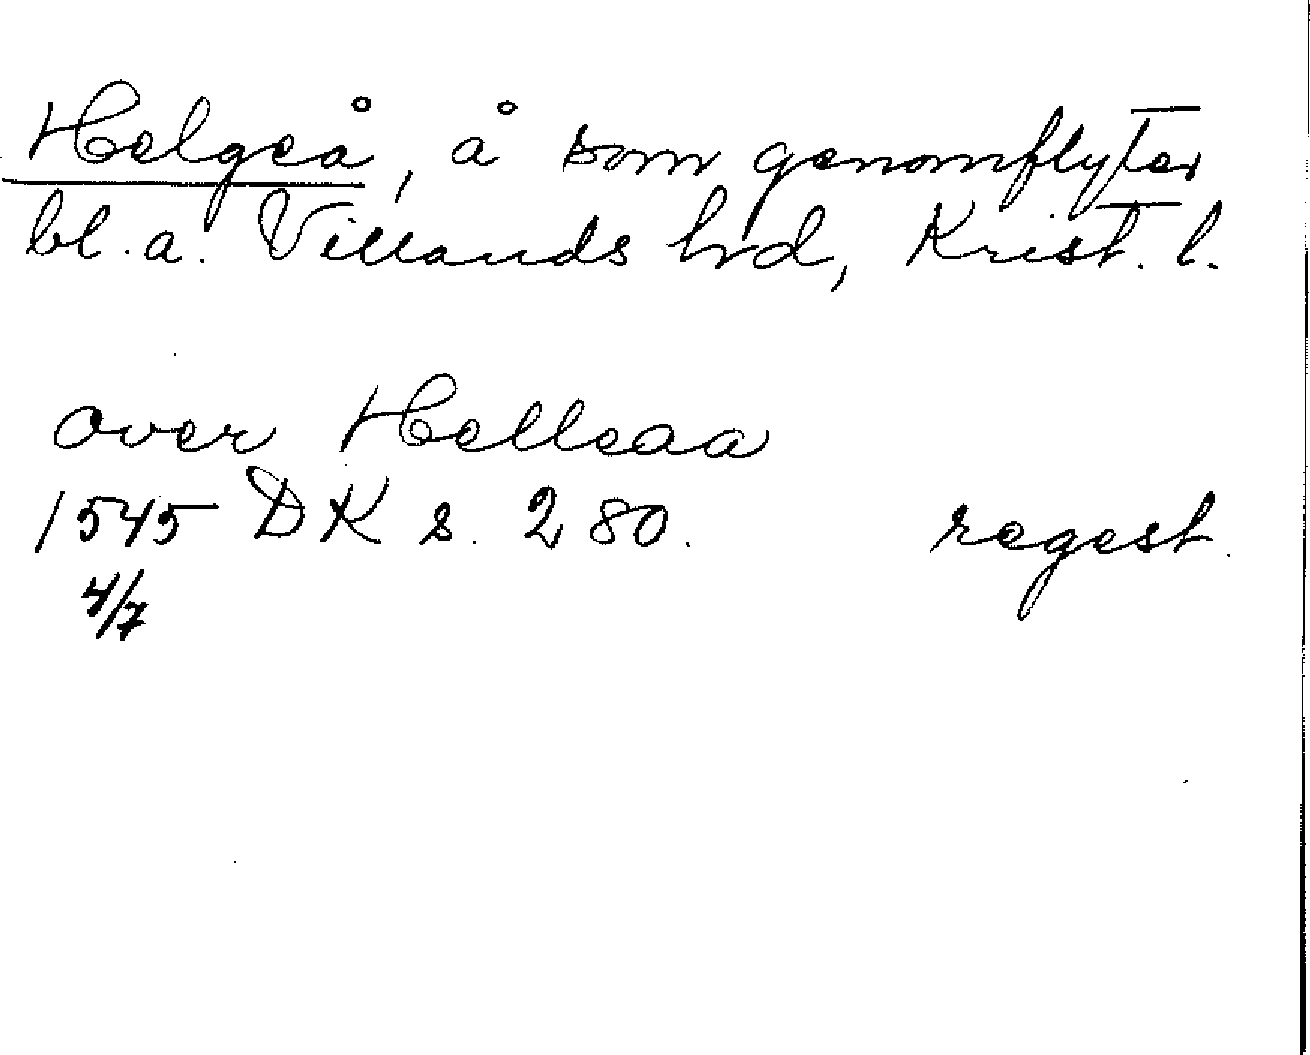 Helgeå, å som genomflyter
bl.a. Villands hrd, Krist. l.
over Helleaa
1545 DK s. 280. regest.
4/7